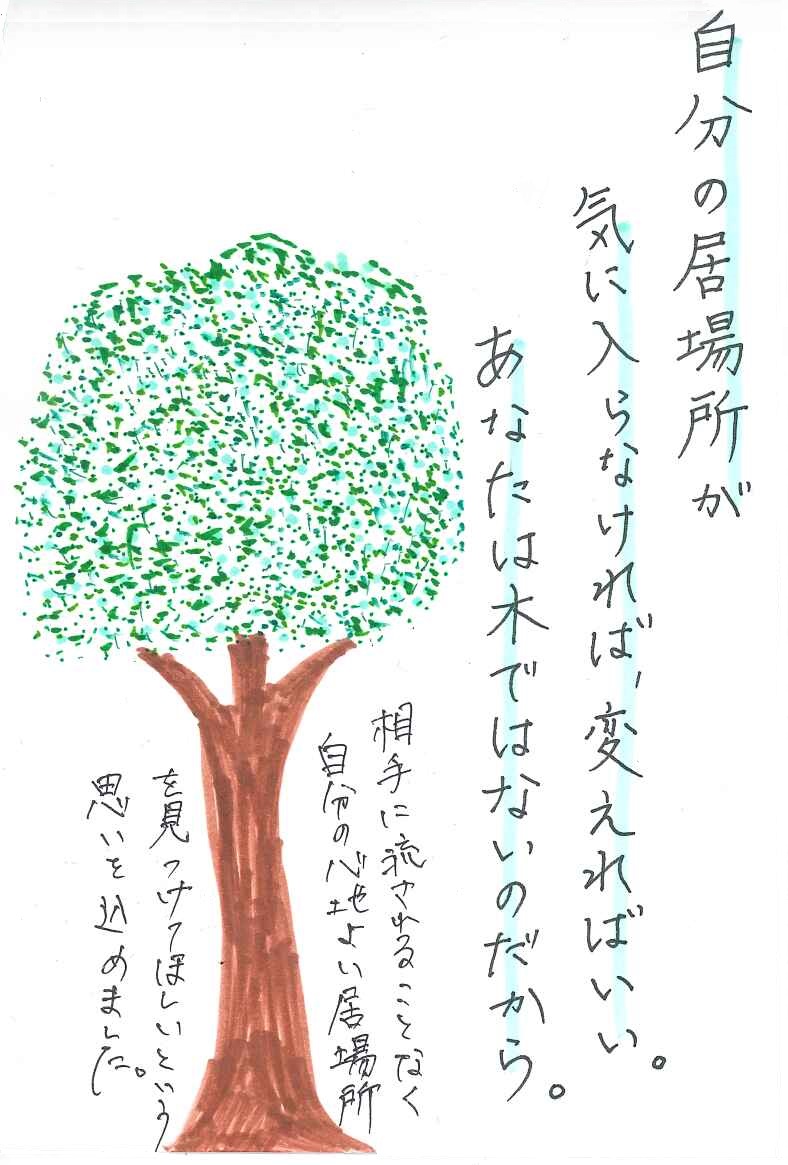 自分の居場所が
気に入らなければ、変えればいい。
あなたは木ではないのだから。
相手に流されることなく
自分の心地よい居場所
を見つけてほしいという
思いを込めました。